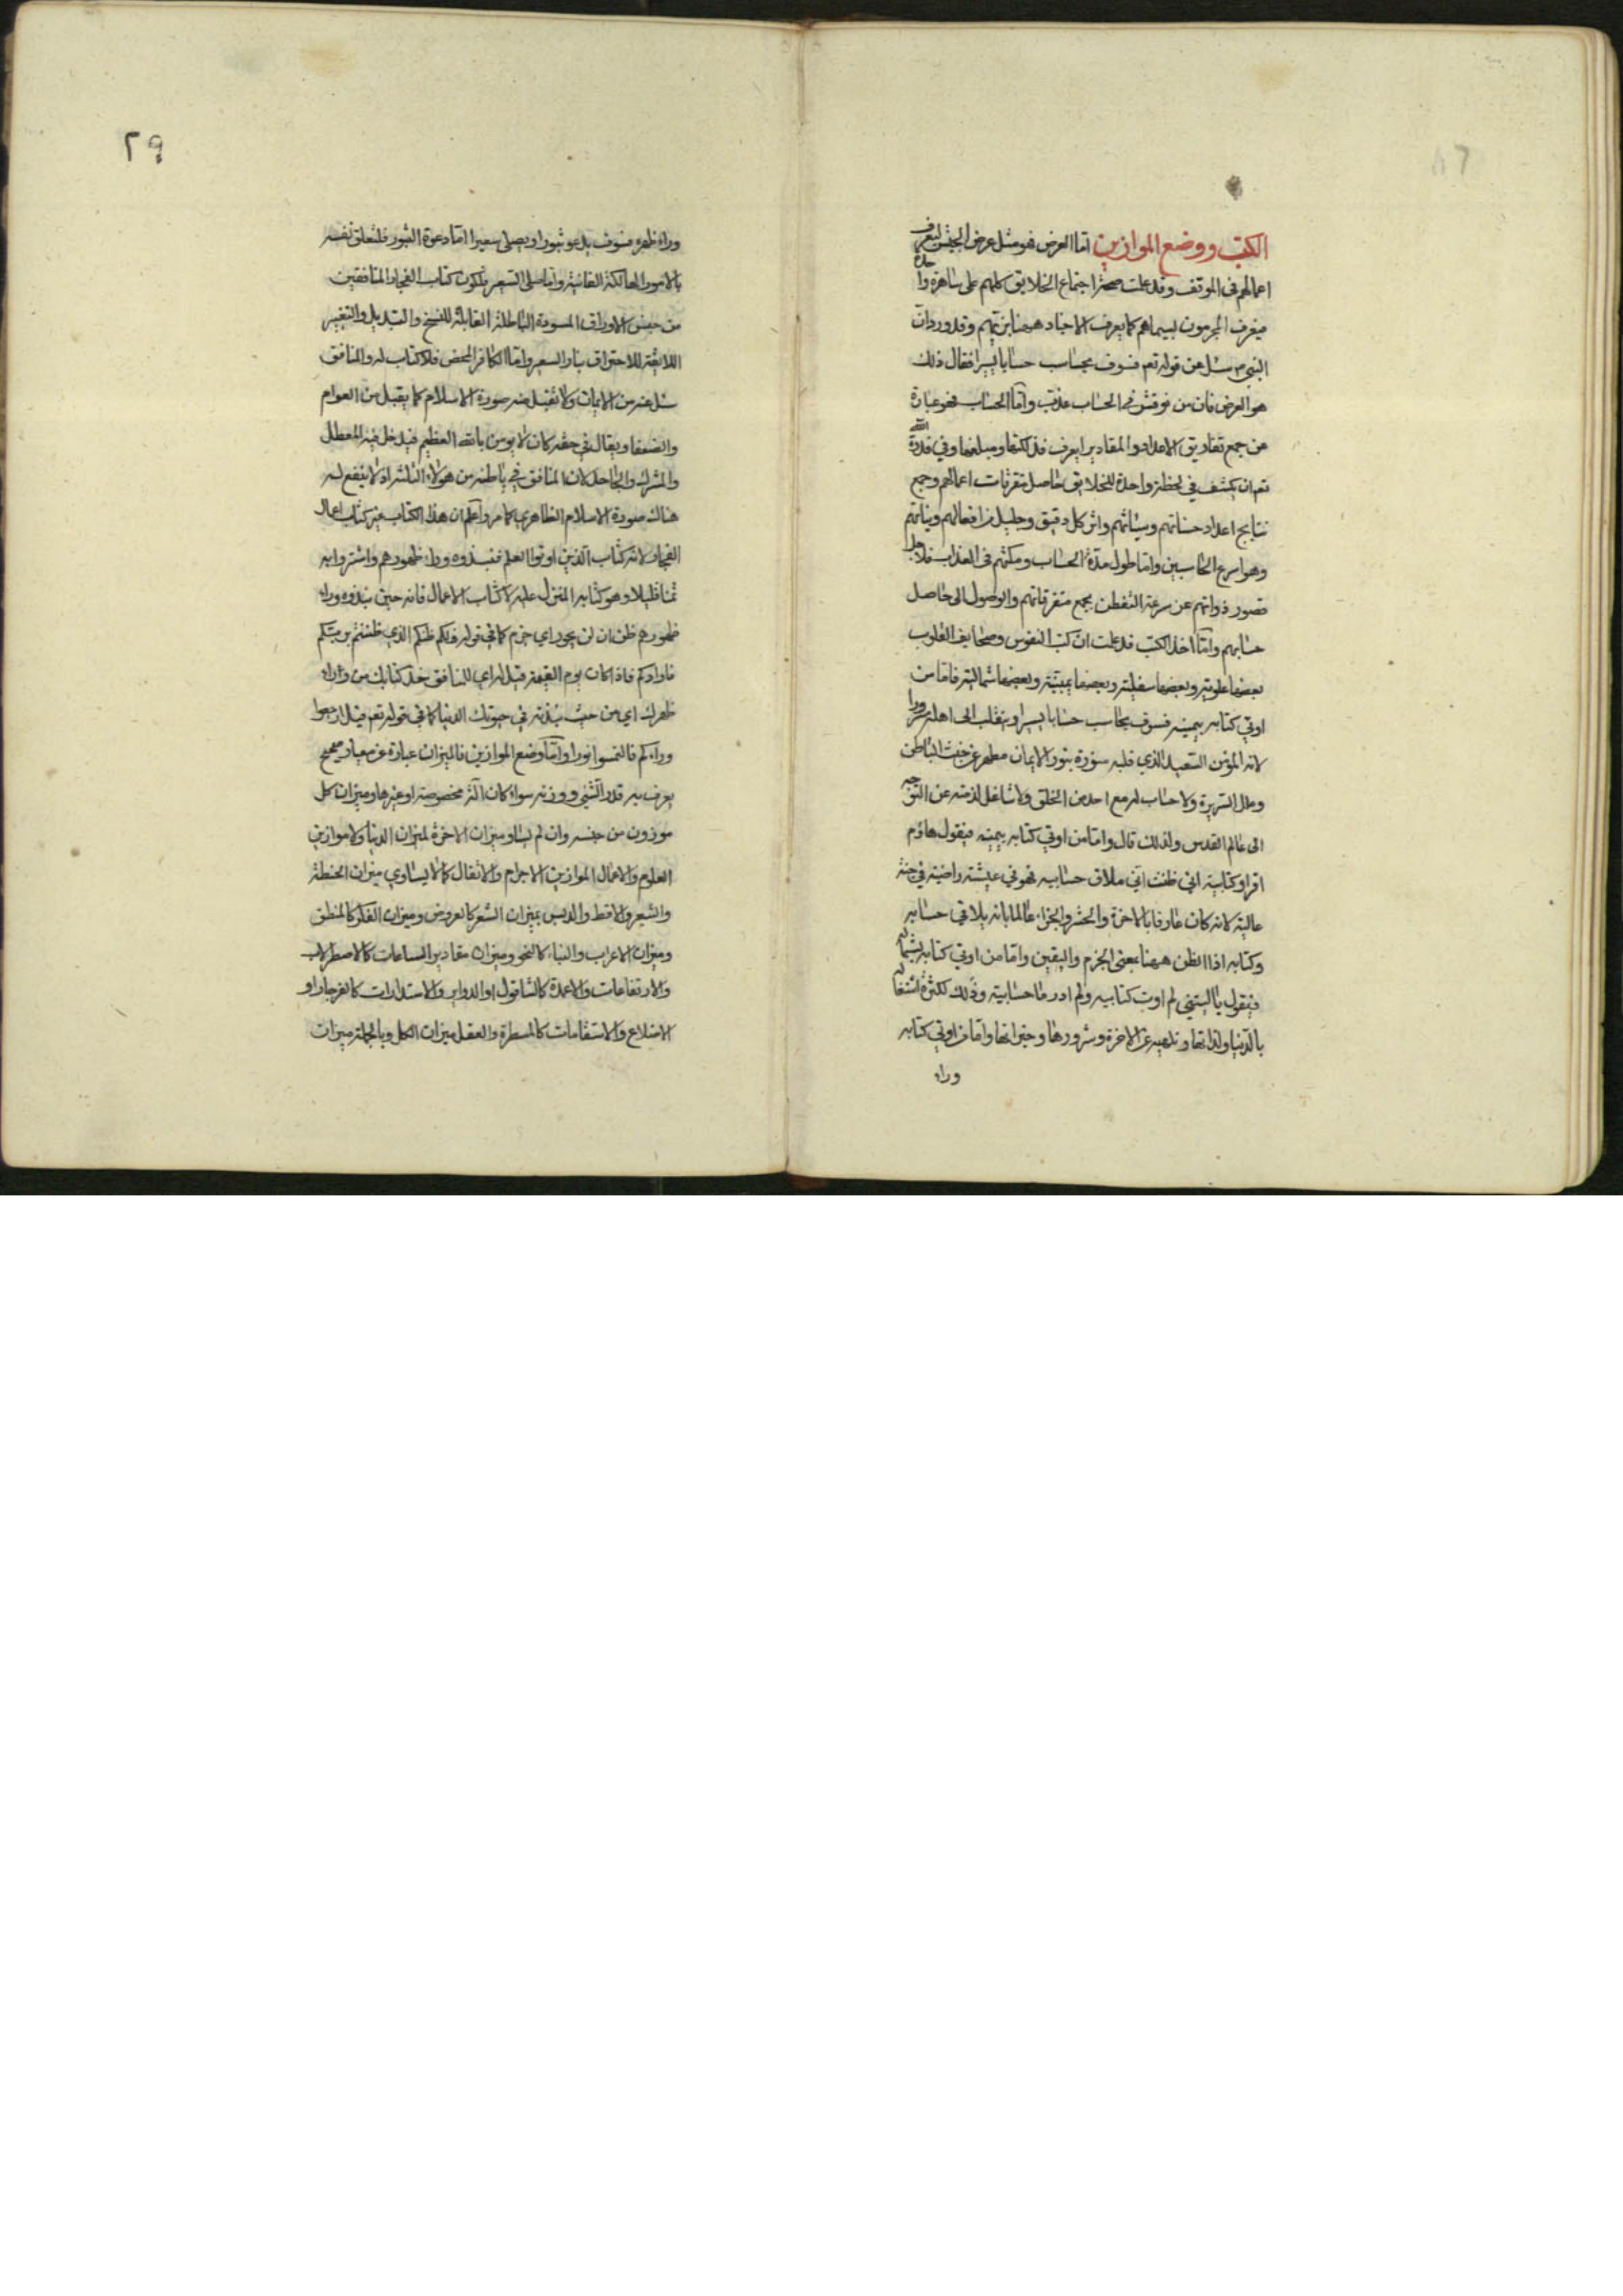 الكتب ووضع الموازين اما العرض فهو مثل عرض الجيش ليعرف
اعمالهم فى الموقف وقد علمت صحة اجتماع الخلايق كلهم على ساهرة واحدة
فيعرف المجرمون بسيماهم كما يعرف الاجناد ههنا بزيهم وقد ورد ان
النبي ص سئل عن قوله تع فسوف يحاسب حسابا يسيرا فقال ذلك
هو العرض فان من نوقش في الحساب عذب واما الحساب فهو عبارة
عن جمع تفاريق الاعداد والمقادير ليعرف فذلكتها ومبلغها وفي قدرة الله
تع ان يكشف في لحظة واحدة للخلايق حاصل متفرقات اعمالهم وجمع
نتايج اعداد حسناتهم وسيئاتهم واثر كل دقيق وجليل من افعالهم ونياتهم
وهو اسرع الحاسبين واما طول مدة الحساب ومكثهم فى العذاب فلاجل
قصور ذواتهم عن سرعة التفطن بجمع متفرقاتهم والوصول الى حاصل
حسابهم واما اخذ الكتب فقد علمت ان كتب النفوس وصحايف القلوب
بعضها علوية وبعضها سفلية وبعضها يمينية وبعضها شمالية فاما من
اوتي كتابه بيمينه فسوف يحاسب حسابا يسيرا وينقلب الى اهله مسرورا
لانه المؤمن السعيد الذي قلبه منورة بنور الايمان مطهر عن خبث الباطن
وعلل السريرة ولا حساب له مع احد من الخلق ولا شاغل لذمته عن التوجه
الى عالم القدس ولذلك قال واما من اوتي كتابه بيمينه فيقول هاؤم
اقراو كتابيه انى ظننت انى ملاق حسابيه فهو في عيشة راضية في جنة
عالية لانه كان عارفا بالاخرة والحشر والجزاء عالما بانه يلاقي حسابه
وكتابه اذا الظن ههنا بمعنى الجزم واليقين واما من اوتي كتابه بشماله
فيقول يا ليتني لم اوت كتابيه ولم ادر ما حسابيه وذلك لكثرة اشتغاله
بالدنيا ولذاتها وتلهيه عن الاخرة وسرورها وخيراتها واما من اوتي كتابه
وراء
٢٩
وراء ظهره فسوف يدعو ثبورا ويصلى سعيرا اما دعوة الثبور فلتعلق نفسه
بالامور الهالكة الفانية واما صلى السعير فلكون كتاب الفجار المنافقين
من جنس الاوراق المسودة الباطلة القابلة للنسخ والتبديل والتغيير
اللايقة للاحتراق بنار السعير واما الكافر المحض فلا كتاب له والمنافق
سئل عنه من الايمان ولا تقبل منه صورة الاسلام كما يقبل من العوام
والضعفاء ويقال في حقه كان لا يؤمن بالله العظيم فيدخل فيه المعطل
والمشرك والجاحد لان المنافق في باطنه من هؤلاء الثلثة اذ لا ينفع له
هناك صورة الاسلام الظاهري كما مر واعلم ان هذا الكتاب غير كتاب اعمال
الفجار لانه كتاب الذين اوتوا العلم فنبذوه وراء ظهورهم واشتروا به
ثمنا قليلا وهو كتابه المنزل عليه لا كتاب الاعمال فانه حين نبذوه وراء
ظهورهم ظن ان لن يحور اي جزم كما في قوله ذلكم ظنكم الذي ظننتم بربكم
فارداكم فاذا كان يوم القيمة قيل له اي للمنافق خذ كتابك من وراء
ظهرك اي من حيث نبذته في حيوتك الدنيا كما في قوله تع قيل ارجعوا
وراءكم فالتمسوا نورا واما وضع الموازين فالميزان عبارة عن معيار صحيح
يعرف به قدر الشيء ووزنه سواء كان الة مخصوصة او غيرها وميزان كل
موزون من جنسه وان لم يساو ميزان الاخرة لميزان الدنيا ولا موازين
العلوم والاعمال الموازين الاجرام والاثقال كما لا يساوي ميزان الحنطة
والشعير والاقط والدبس بميزان الشعر كالعروض وميزان الفكر كالمنطق
وميزان الاعراب والبناء كالنحو وميزان مقادير الساعات كالاصطرلاب
والارتفاعات والاعمدة كالشاقول او الدواير والاستدارات كالفرجار او
الاضلاع والاستقامات كالمسطرة والعقل ميزان الكل وبالجملة ميزان